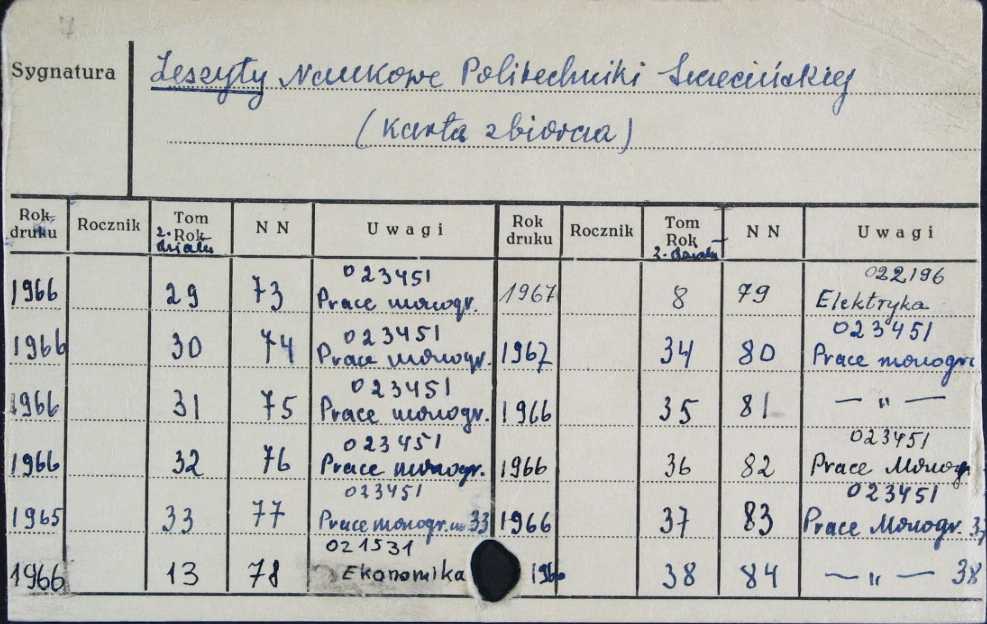 Sygnatura
Zeszyty Naukowe Politechniki Szczecińskiej
(karta zbiorcza)
Rok druku Rocznik Tom Rok N N Uwagi Rok druku Rocznik Tom Rok N N Uwagi
z. działu z. działu
023451 022196
1966 29 73 Prace monogr. 1967 8 79 Elektryka
023451 023451
1966 30 74 Prace monogr. 1967 34 80 Prace monogr.
023451
1966 31 75 Prace monogr. 1966 35 81 — „ —
023451 023451
1966 32 76 Prace monogr. 1966 36 82 Prace Monogr.
023451 023451
1965 33 77 Prace monogr. 33 1966 37 83 Prace Monogr. 37
021531
1966 13 78 Ekonomika 38 84 — „ — 38